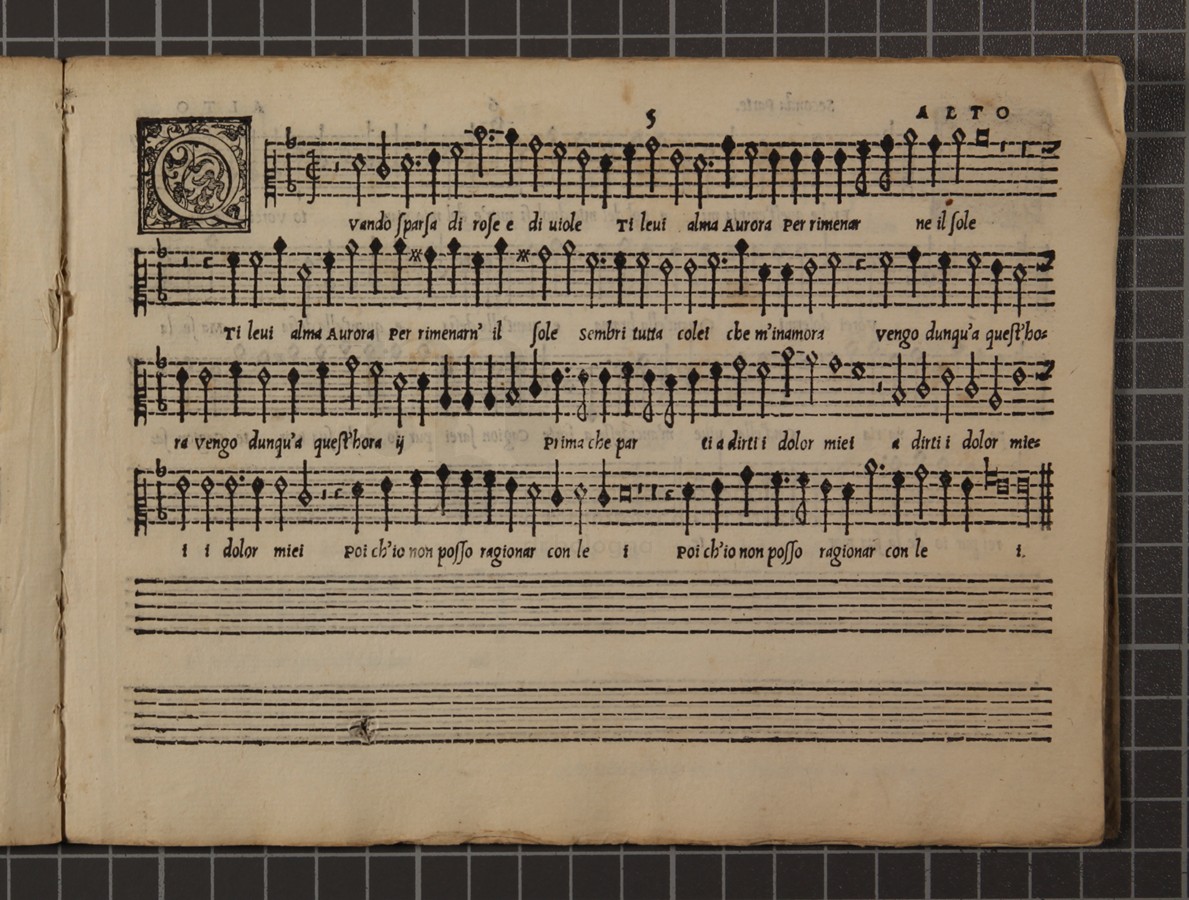 5 ALTO
QVando sparsa di rose e di uiole Ti leui alma Aurora Per rimenar ne il sole
Ti leui alma Aurora Per rimenarn' il sole Sembri tutta colei che m'inamora Vengo dunqu'a quest'ho=
ra vengo dunqu'a quest'hora ij Prima che par ti a dirti i dolor miei a dirti i dolor mie=
i i dolor miei Poi ch'io non posso ragionar con le i Poi ch'io non posso ragionar con le i.